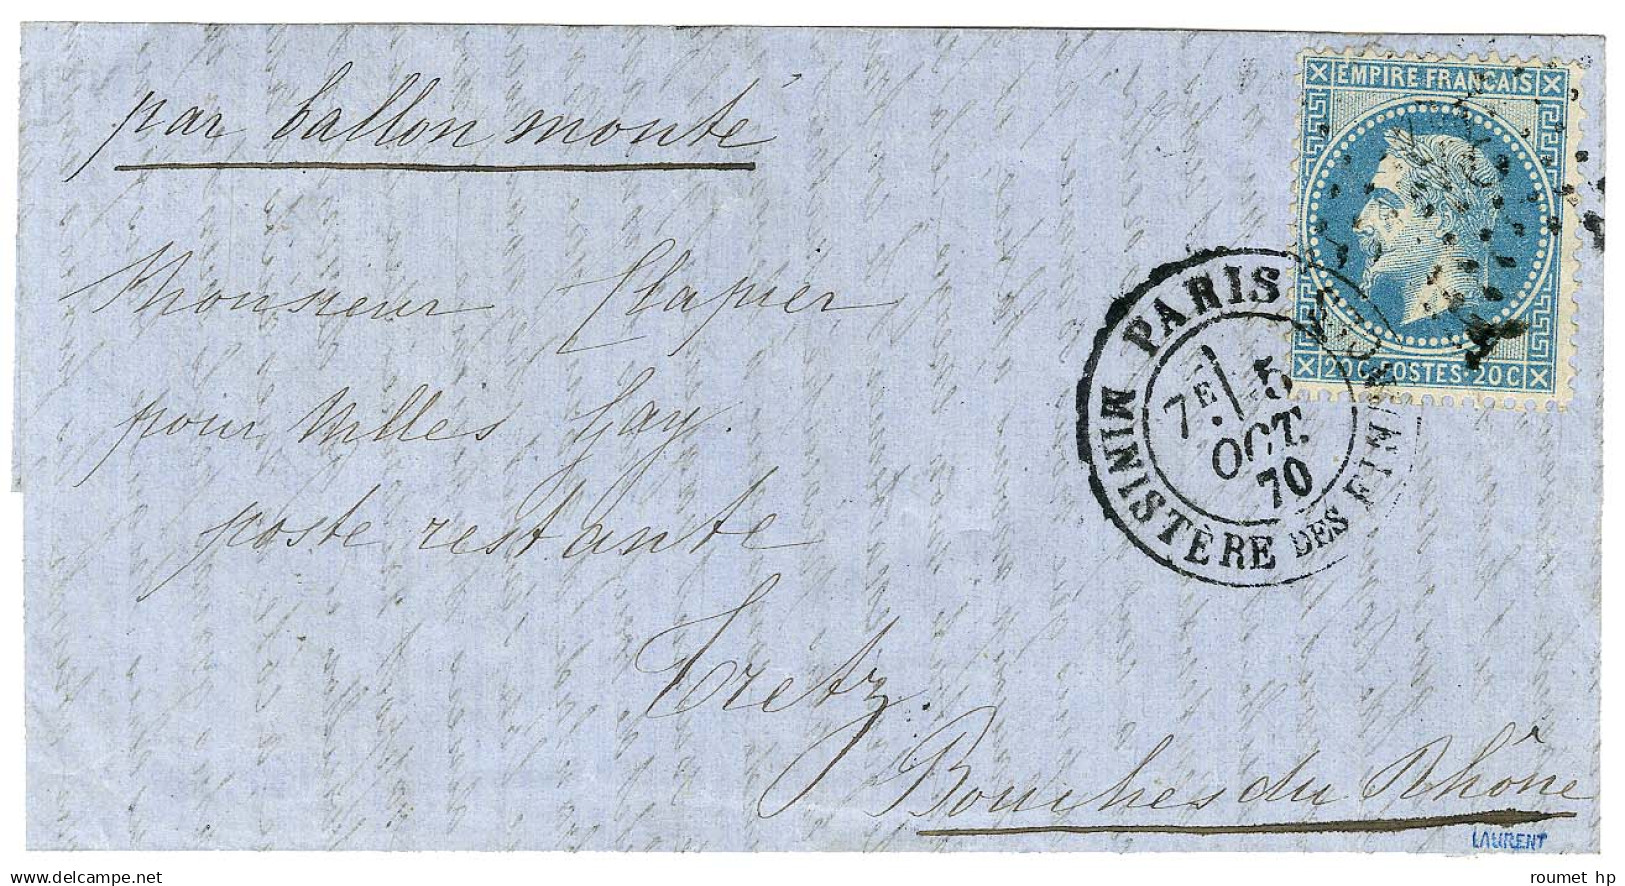 par ballon monté
EMPIRE FRANCAIS
Monsieur Clapier
PARIS
MINISTÈRE DES FINAN
7E 5
OCT.
70
20 C POSTES · 20 C
pour Mlles Gay.
poste restante
Tretz.
Bouches du Rhône
LAURENT
roumet hp